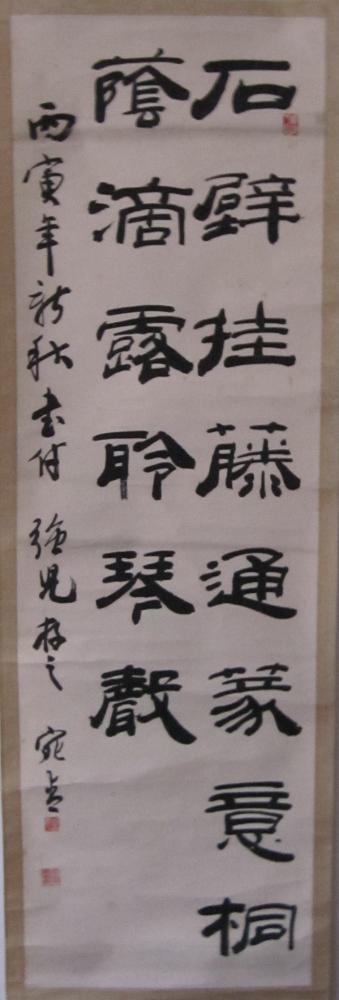 石壁挂藤通篆意桐
蔭滴露聆琴聲
丙寅年新秋書付 強兒存之 宛